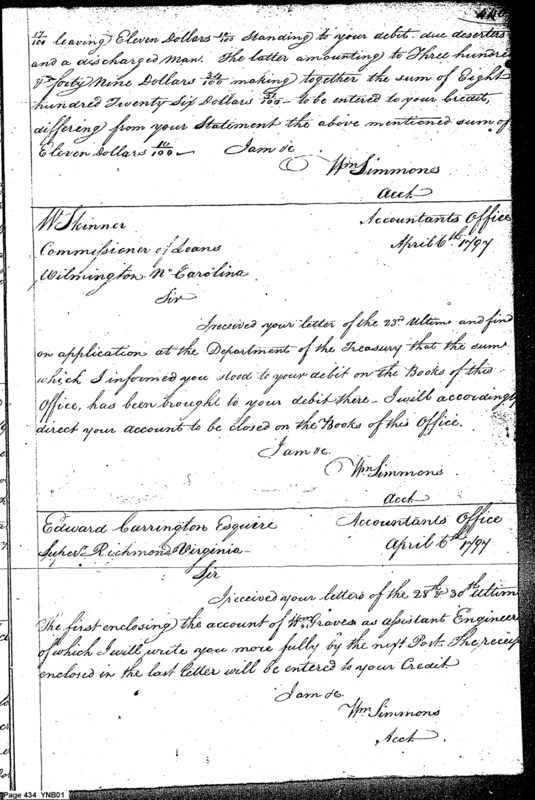 17/100 leaving Eleven Dollars 10/100 Standing to your debit due deserters
and a discharged Man. The latter amounting to Three hundre
& forty Nine Dollars 34/100 making together the sum of Eight
hundred Twenty Six Dollars 31/100 to be entered to your Credit,
differing from your Statement the above mentioned sum of
Eleven Dollars 10/100
I am &c
Wm Simmons
Acct
W Skinner Accountants Office
Commissioner of Loans April 6th 1797
Wilmington No Carolina
Sir
I received your letter of the 23d Ultimo and find
on application at the Department of the Treasury that the sum
which I informed you stood to your debit on the Books of this
Office, has been brought to your debit there – I will accordingly
direct your account to be closed on the Books of this Office.
I am &c.
Wm Simmons
Acct
Edward Carrington Esquire Accountants Office
Superr Richmond Virginia April 6th 1797
Sir
I received your letters of the 28th & 30th Ultimo
The first enclosing the account of Wm Graves as assistant Engineer
of which I will write you more fully by the next Post. The receip
enclosed in the last letter will be entered to your Credit
I am &c.
Wm Simmons
Acct.
Page 434 YNB01